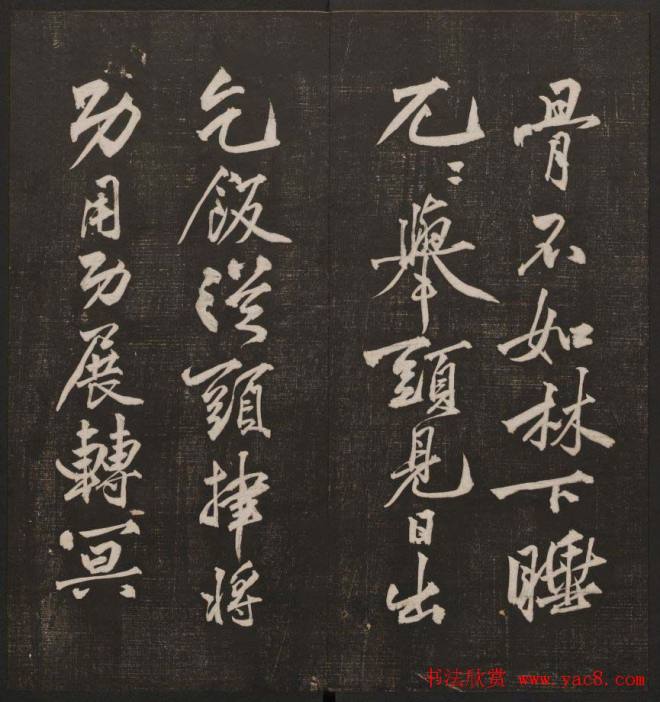 骨不如林下睡
兀〻舉頭見日出
乞飯從頭捽將
功用功展轉冥
书法欣赏 www.yac8.com